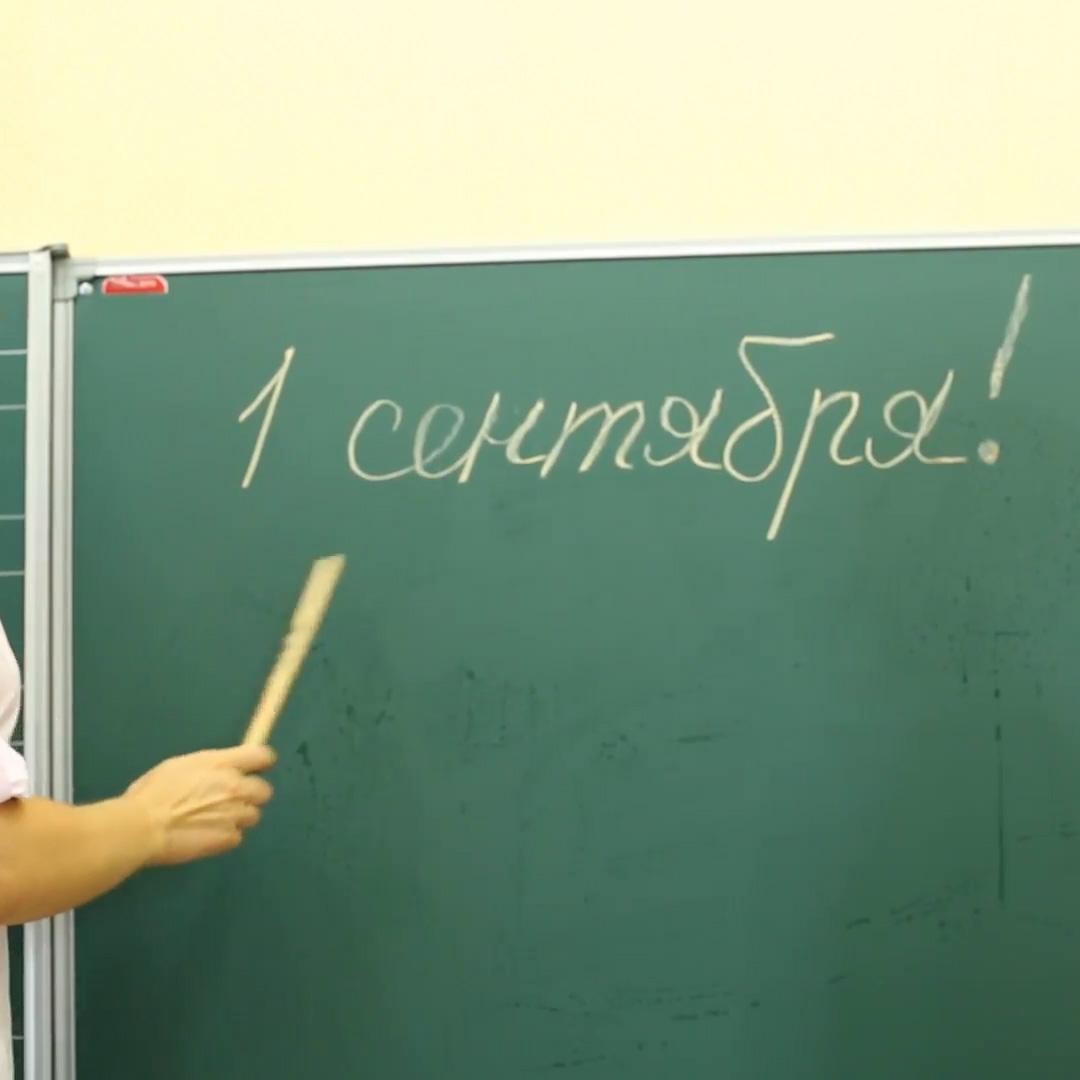 1 сентября!